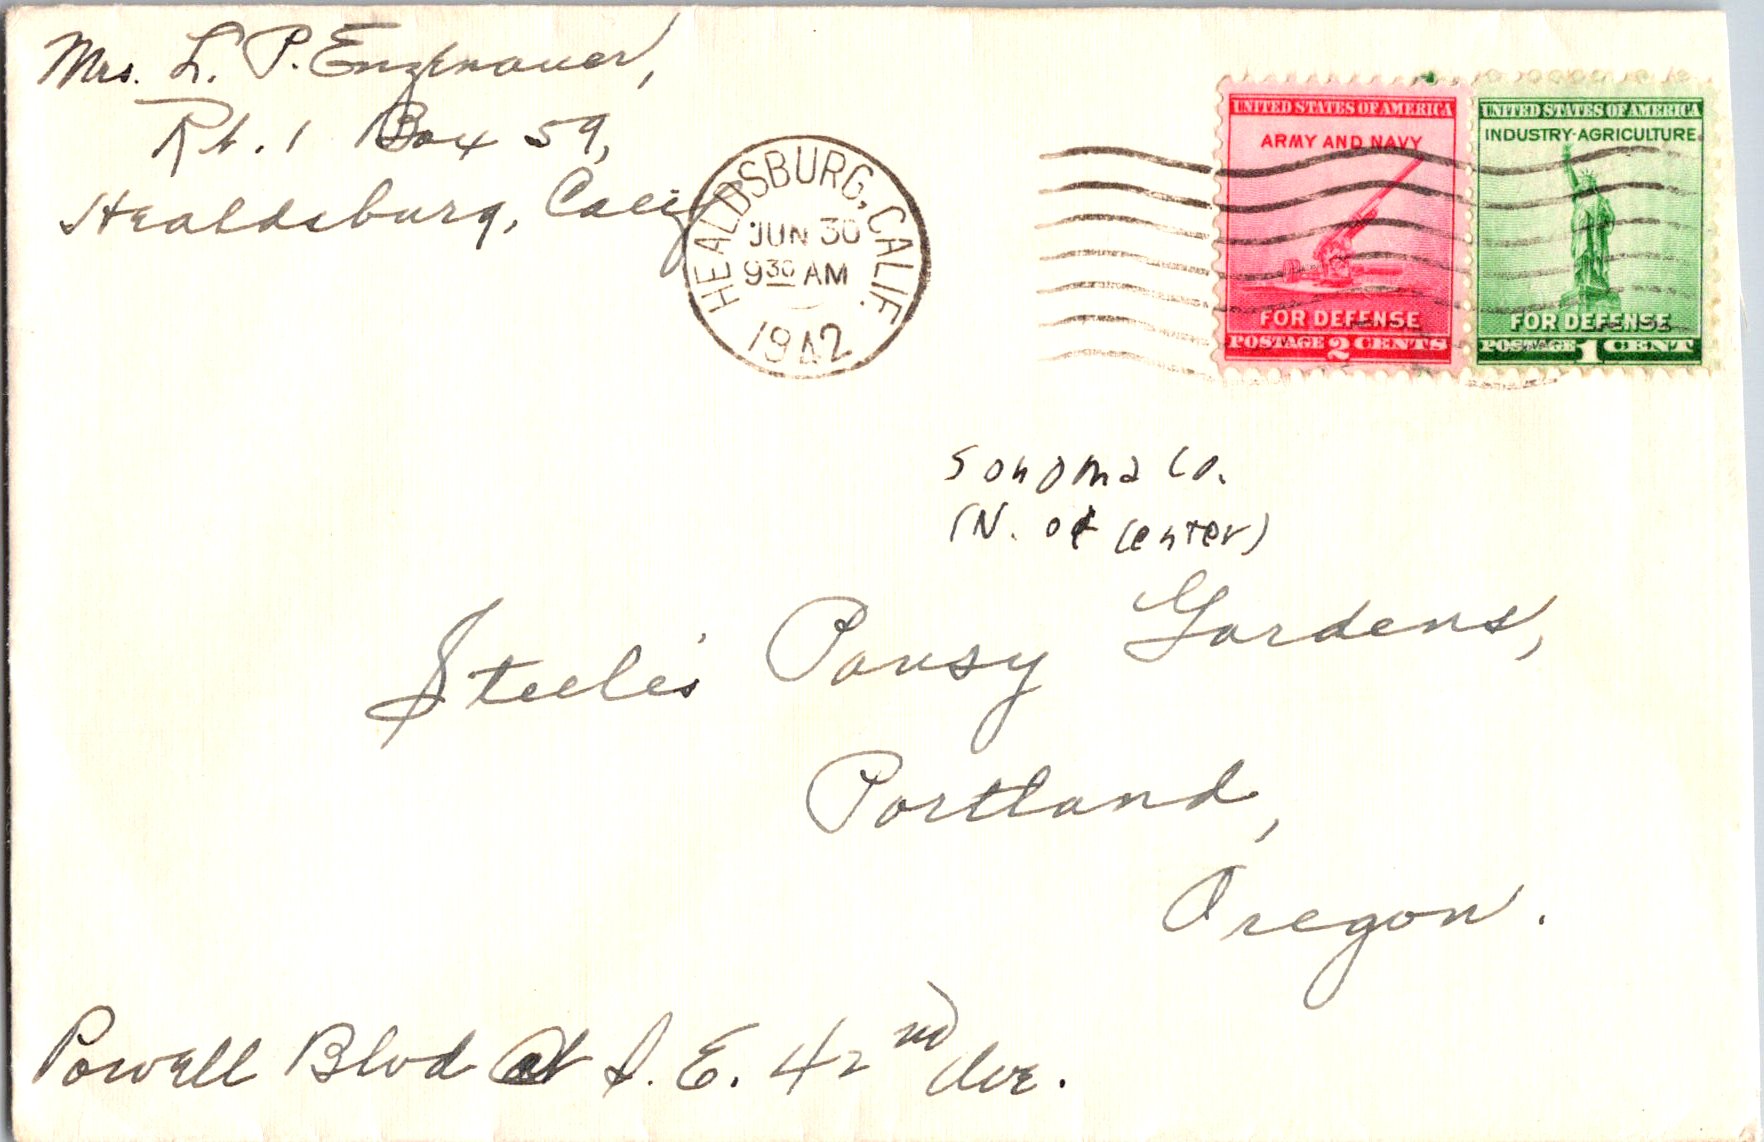 Mrs. L. P. Enzenauer,
Rt. 1 Box 59,
Healdsburg, Calif
HEALDSBURG, CALIF.
JUN 30
9 30 AM
1942
UNITED STATES OF AMERICA
ARMY AND NAVY
FOR DEFENSE
POSTAGE 2 CENTS
UNITED STATES OF AMERICA
INDUSTRY·AGRICULTURE
FOR DEFENSE
POSTAGE 1 CENT
Sonoma Co.
(N. of Center)
Steele's Pansy Gardens,
Portland,
Oregon.
Powell Blvd at S. E. 42nd Ave.